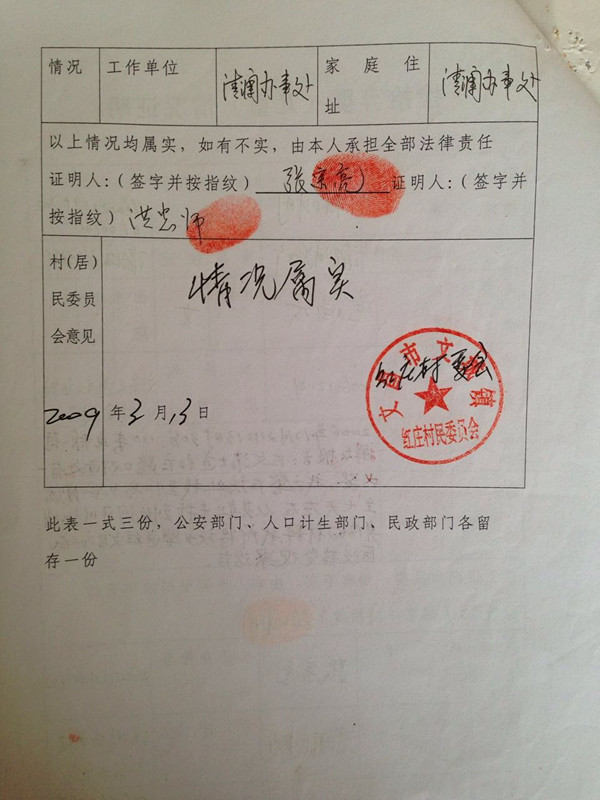 情况 工作单位 清澜办事处 家庭住址 清澜办事处
以上情况均属实，如有不实，由本人承担全部法律责任
证明人：（签字并按指纹） 张家亮 证明人：（签字并
按指纹） 洪忠师
村（居）
民委员
会意见
情况属实
红庄村委会
文昌市文城镇
红庄村民委员会
2009年3月13日
此表一式三份，公安部门、人口计生部门、民政部门各留
存一份